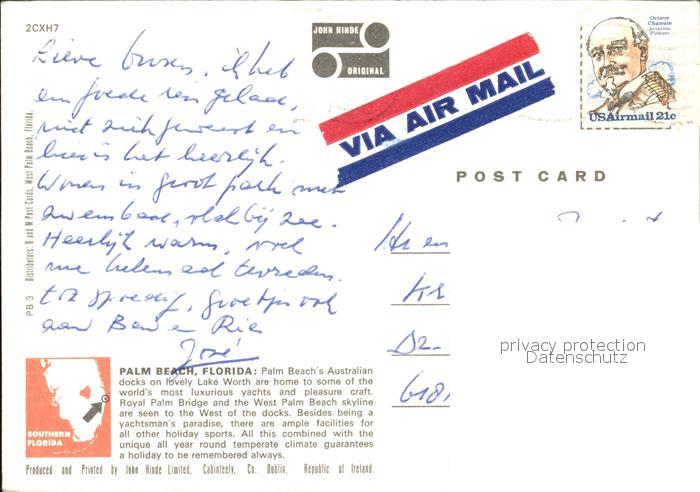 2CXH7
JOHN HINDE
ORIGINAL
Octave
Chanute
Aviation
Pioneer
USAirmail 21c
VIA AIR MAIL
POST CARD
Lieve buren, ik heb
een goede reis gehad,
niet ziek geweest en
hier is het heerlijk.
Wonen in groot park met
zwembad, vlak bij zee.
Heerlijk warm, voel
me helemaal tevreden.
tot spoedig, groetjes ook
aan Ben en Ria
José
Hr en
Kr
Dr-
618
privacy protection
Datenschutz
PB 3 Distributors: D and M Post Cards, West Palm Beach, Florida.
SOUTHERN
FLORIDA
PALM BEACH, FLORIDA: Palm Beach's Australian
docks on lovely Lake Worth are home to some of the
world's most luxurious yachts and pleasure craft.
Royal Palm Bridge and the West Palm Beach skyline
are seen to the West of the docks. Besides being a
yachtsman's paradise, there are ample facilities for
all other holiday sports. All this combined with the
unique all year round temperate climate guarantees
a holiday to be remembered always.
Produced and Printed by John Hinde Limited, Cabinteely, Co. Dublin, Republic of Ireland.